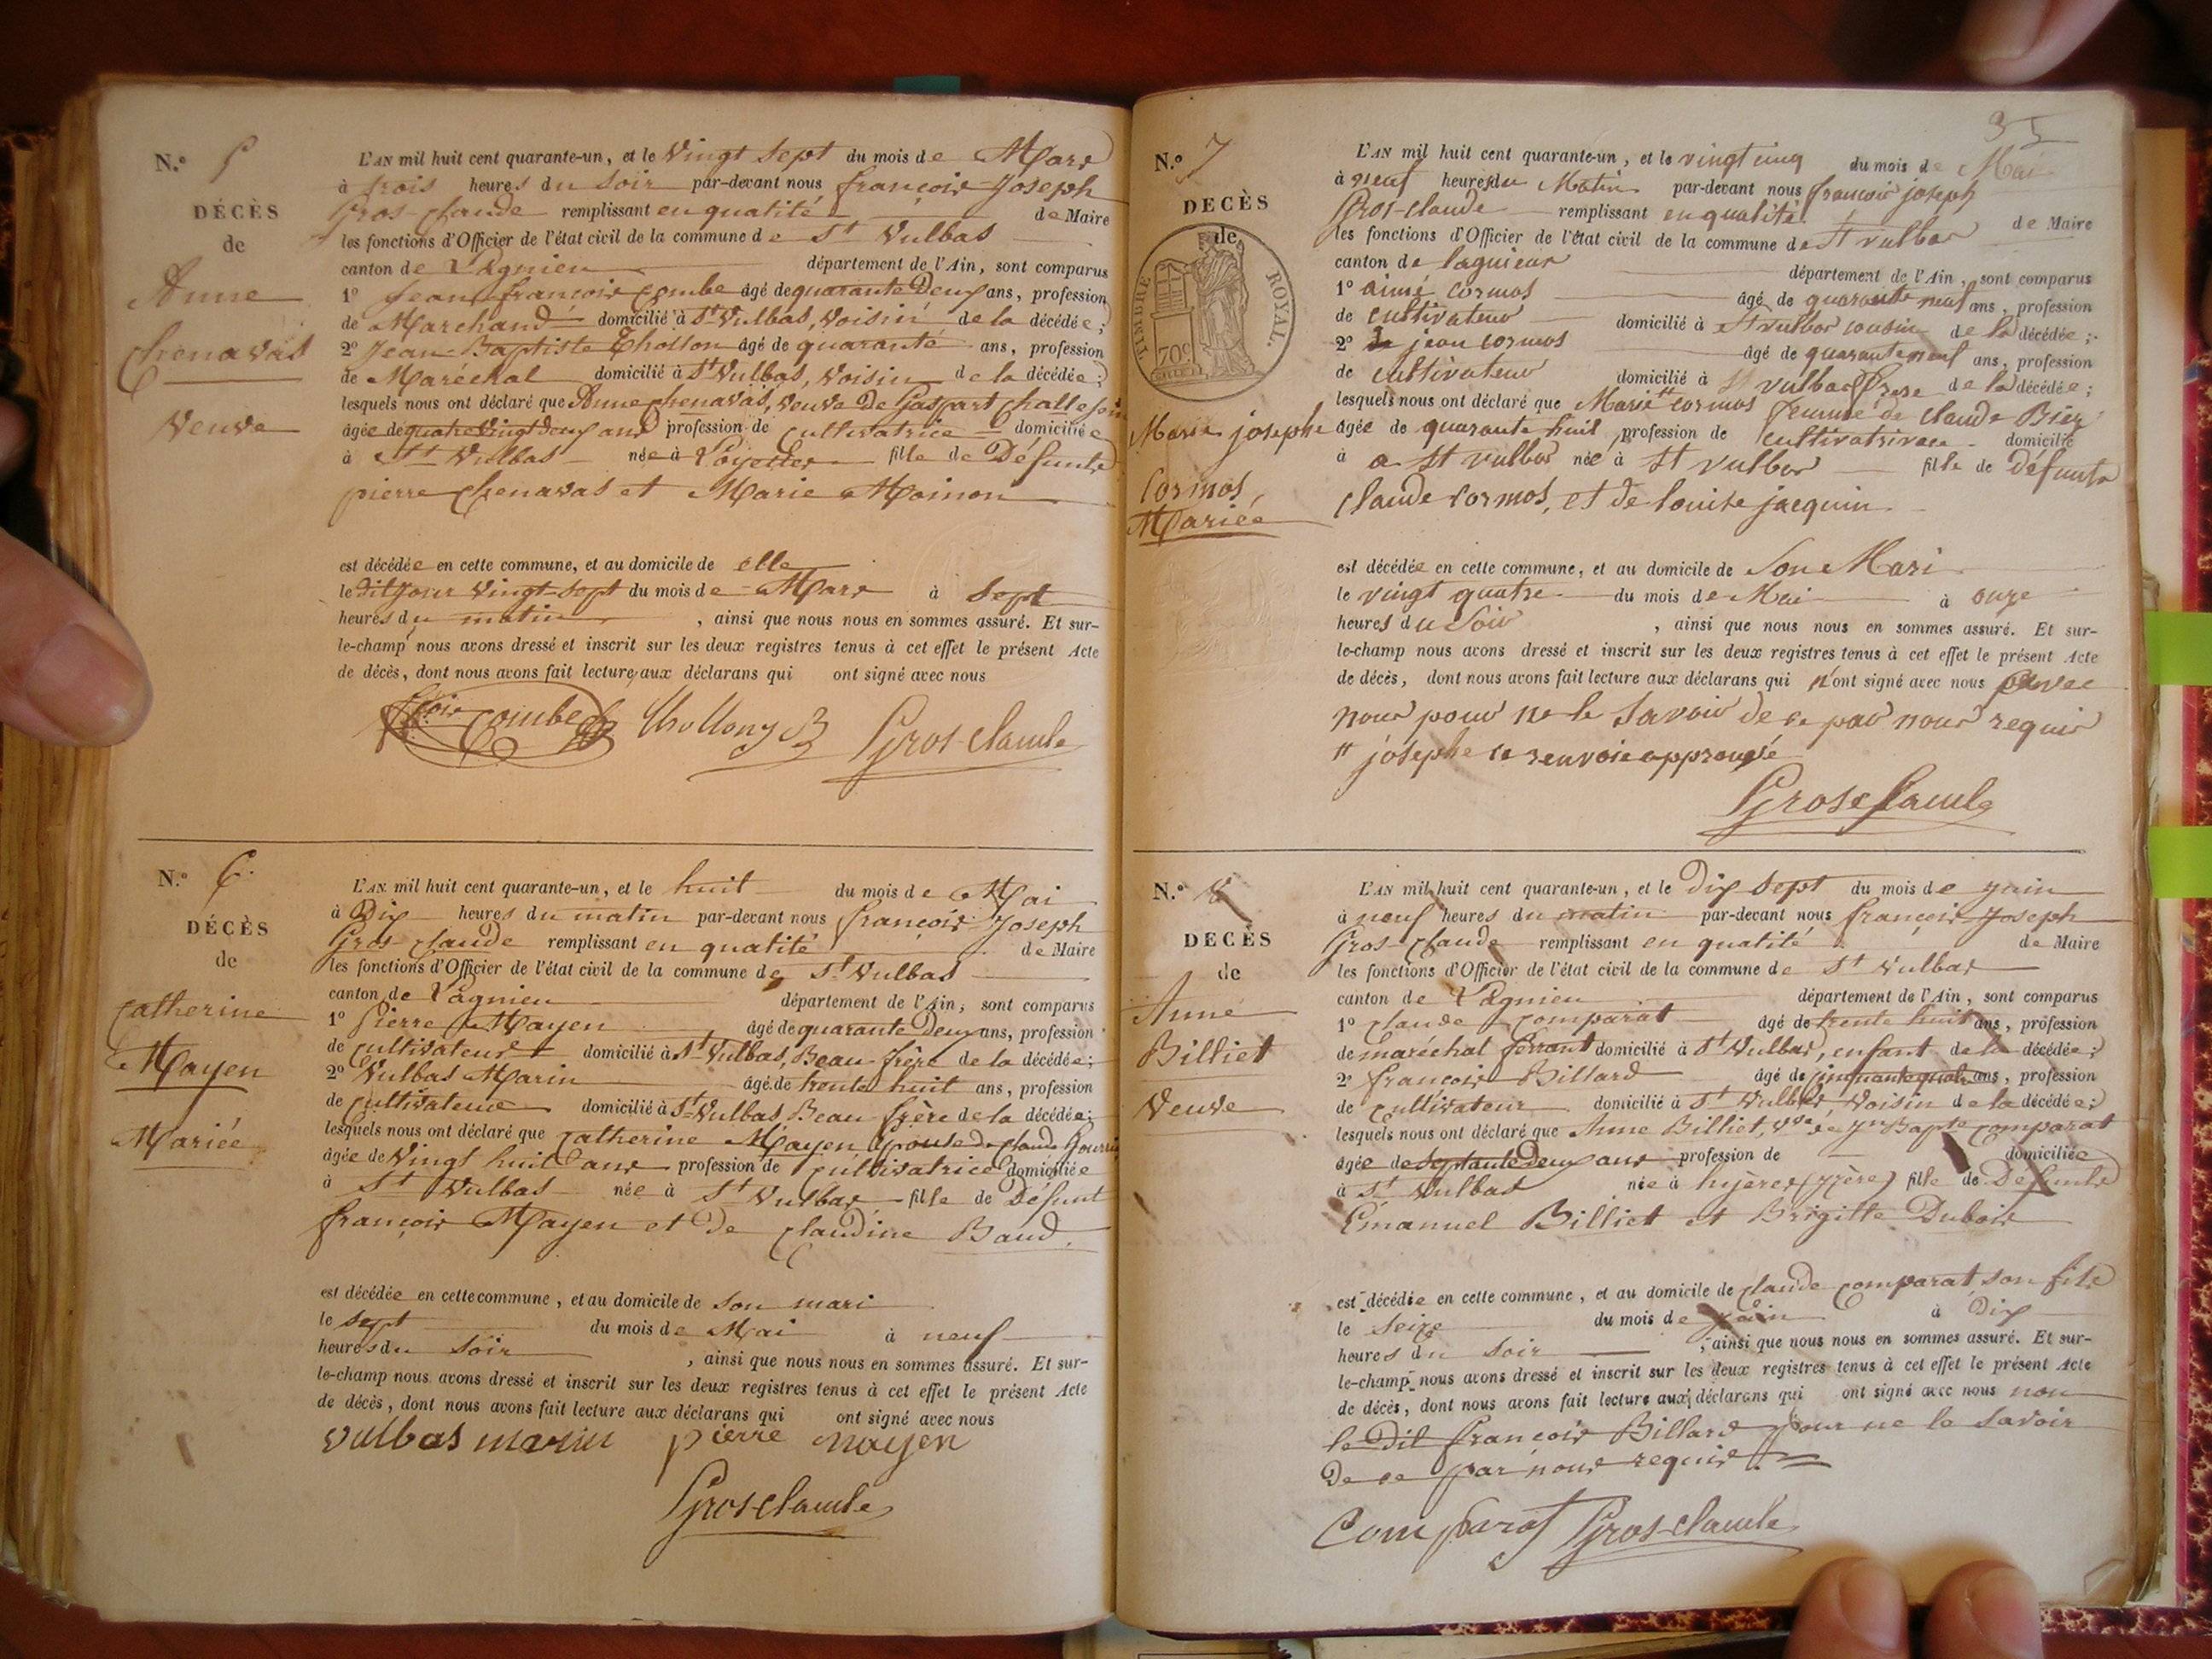 N.o 5
DÉCÈS
de
Anne
Chenavas
Veuve
L'AN mil huit cent quarante-un, et le Vingt Sept du mois de Mars
à trois heures du Soir par-devant nous françois Joseph
Gros-Claude remplissant en qualité de Maire
les fonctions d'Officier de l'état civil de la commune de St Vulbas
canton de Lagnieu département de l'Ain, sont comparus
1o Jean françois Combe âgé de quarante Deux ans, profession
de Marchand domicilié à St Vulbas, Voisin de la décédée;
2o Jean-Baptiste Chollon âgé de quarante ans, profession
de Maréchal domicilié à St Vulbas, Voisin de la décédée;
lesquels nous ont déclaré que Anne Chenavas, Veuve De Gaspart
âgée de quatre Vingt Deux ans profession de Cultivatrice domiciliée
à St Vulbas née à Loyettes fille de Défunts
pierre Chenavas et Marie Moinon
est décédée en cette commune, et au domicile de elle
le Dit Jour Vingt-Sept du mois de Mars à Sept
heures du matin, ainsi que nous nous en sommes assuré. Et sur-
le-champ nous avons dressé et inscrit sur les deux registres tenus à cet effet le présent Acte
de décès, dont nous avons fait lecture aux déclarans qui ont signé avec nous
Combe Gros-Claude
N.o 6.
DÉCÈS
de
Catherine
Mayen
Mariée
L'AN mil huit cent quarante-un, et le huit du mois de Mai
à Dix heures du matin par-devant nous françois Joseph
Gros-Claude remplissant en qualité de Maire
les fonctions d'Officier de l'état civil de la commune de St Vulbas
canton de Lagnieu département de l'Ain, sont comparus
1o Pierre Mayen âgé de quarante Deux ans, profession
de Cultivateur domicilié à St Vulbas, Beau-frère de la décédée;
2o Vulbas Marin âgé de trente huit ans, profession
de Cultivateur domicilié à St Vulbas Beau frère de la décédée;
lesquels nous ont déclaré que Catherine Mayen, Epouse de Claude
âgée de Vingt huit ans profession de Cultivatrice domiciliée
à St Vulbas née à St Vulbas fille de Défunt
françois Mayen et De Claudine Baud.
est décédée en cette commune, et au domicile de son mari
le sept du mois de Mai à neuf
heures du soir, ainsi que nous nous en sommes assuré. Et sur-
le-champ nous avons dressé et inscrit sur les deux registres tenus à cet effet le présent Acte
de décès, dont nous avons fait lecture aux déclarans qui ont signé avec nous
vulbas marin pierre mayen
Gros-Claude
35
N.o 7
DÉCÈS
de
TIMBRE ROYAL.
70c
Marie josephe
Cormos,
Mariée
L'AN mil huit cent quarante-un, et le vingt cinq du mois de Mai
à neuf heures du Matin par-devant nous francois joseph
Gros-Claude remplissant en qualité de Maire
les fonctions d'Officier de l'état civil de la commune de St vulbas
canton de lagnieux département de l'Ain, sont comparus
1o aimé Cormos âgé de quarante neuf ans, profession
de cultivateur domicilié à St vulbas cousin de la décédée;
2o jean cormos âgé de quarante neuf ans, profession
de cultivateur domicilié à St vulbas frere de la décédée;
lesquels nous ont déclaré que Marie # Cormos femme de Claude Bier
âgée de quarante huit profession de domicilié
à a St vulbas née à St vulbas fille de défunts
Claude Cormos, et de louise jacquin
est décédée en cette commune, et au domicile de Son Mari
le vingt quatre du mois de Mai à onze
heures du Soir, ainsi que nous nous en sommes assuré. Et sur-
le-champ nous avons dressé et inscrit sur les deux registres tenus à cet effet le présent Acte
de décès, dont nous avons fait lecture aux déclarans qui n'ont signé avec nous
nous pour ne le Savoir de ce par nous requis
# josephe ce renvoie approuvé
Gros-Claude
N.o 8
DÉCÈS
de
Anne
Billiet
Veuve
L'AN mil huit cent quarante-un, et le Dix Sept du mois de juin
à neuf heures du matin par-devant nous françois Joseph
Gros-Claude remplissant en qualité de Maire
les fonctions d'Officier de l'état civil de la commune de St Vulbas
canton de Lagnieu département de l'Ain, sont comparus
1o Claude Comparat âgé de trente huit ans, profession
de maréchal ferrant domicilié à St Vulbas, enfant de la décédée;
2o françois Billard âgé de cinquante quatre ans, profession
de Cultivateur domicilié à St Vulbas, Voisin de la décédée;
lesquels nous ont déclaré que Anne Billiet, Vve de Jn Bapte Comparat
âgée de Septante Deux ans profession de domiciliée
à St Vulbas née à hyères (yzère) fille de Défunts
Emanuel Billiet et Brigitte Dubois
est décédée en cette commune, et au domicile de Claude Comparat, son fils
le Seize du mois de juin à Dix
heures du soir, ainsi que nous nous en sommes assuré. Et sur-
le-champ nous avons dressé et inscrit sur les deux registres tenus à cet effet le présent Acte
de décès, dont nous avons fait lecture aux déclarans qui ont signé avec nous non
le Dit françois Billard pour ne le Savoir
De ce par nous requis.
Comparat Gros-Claude